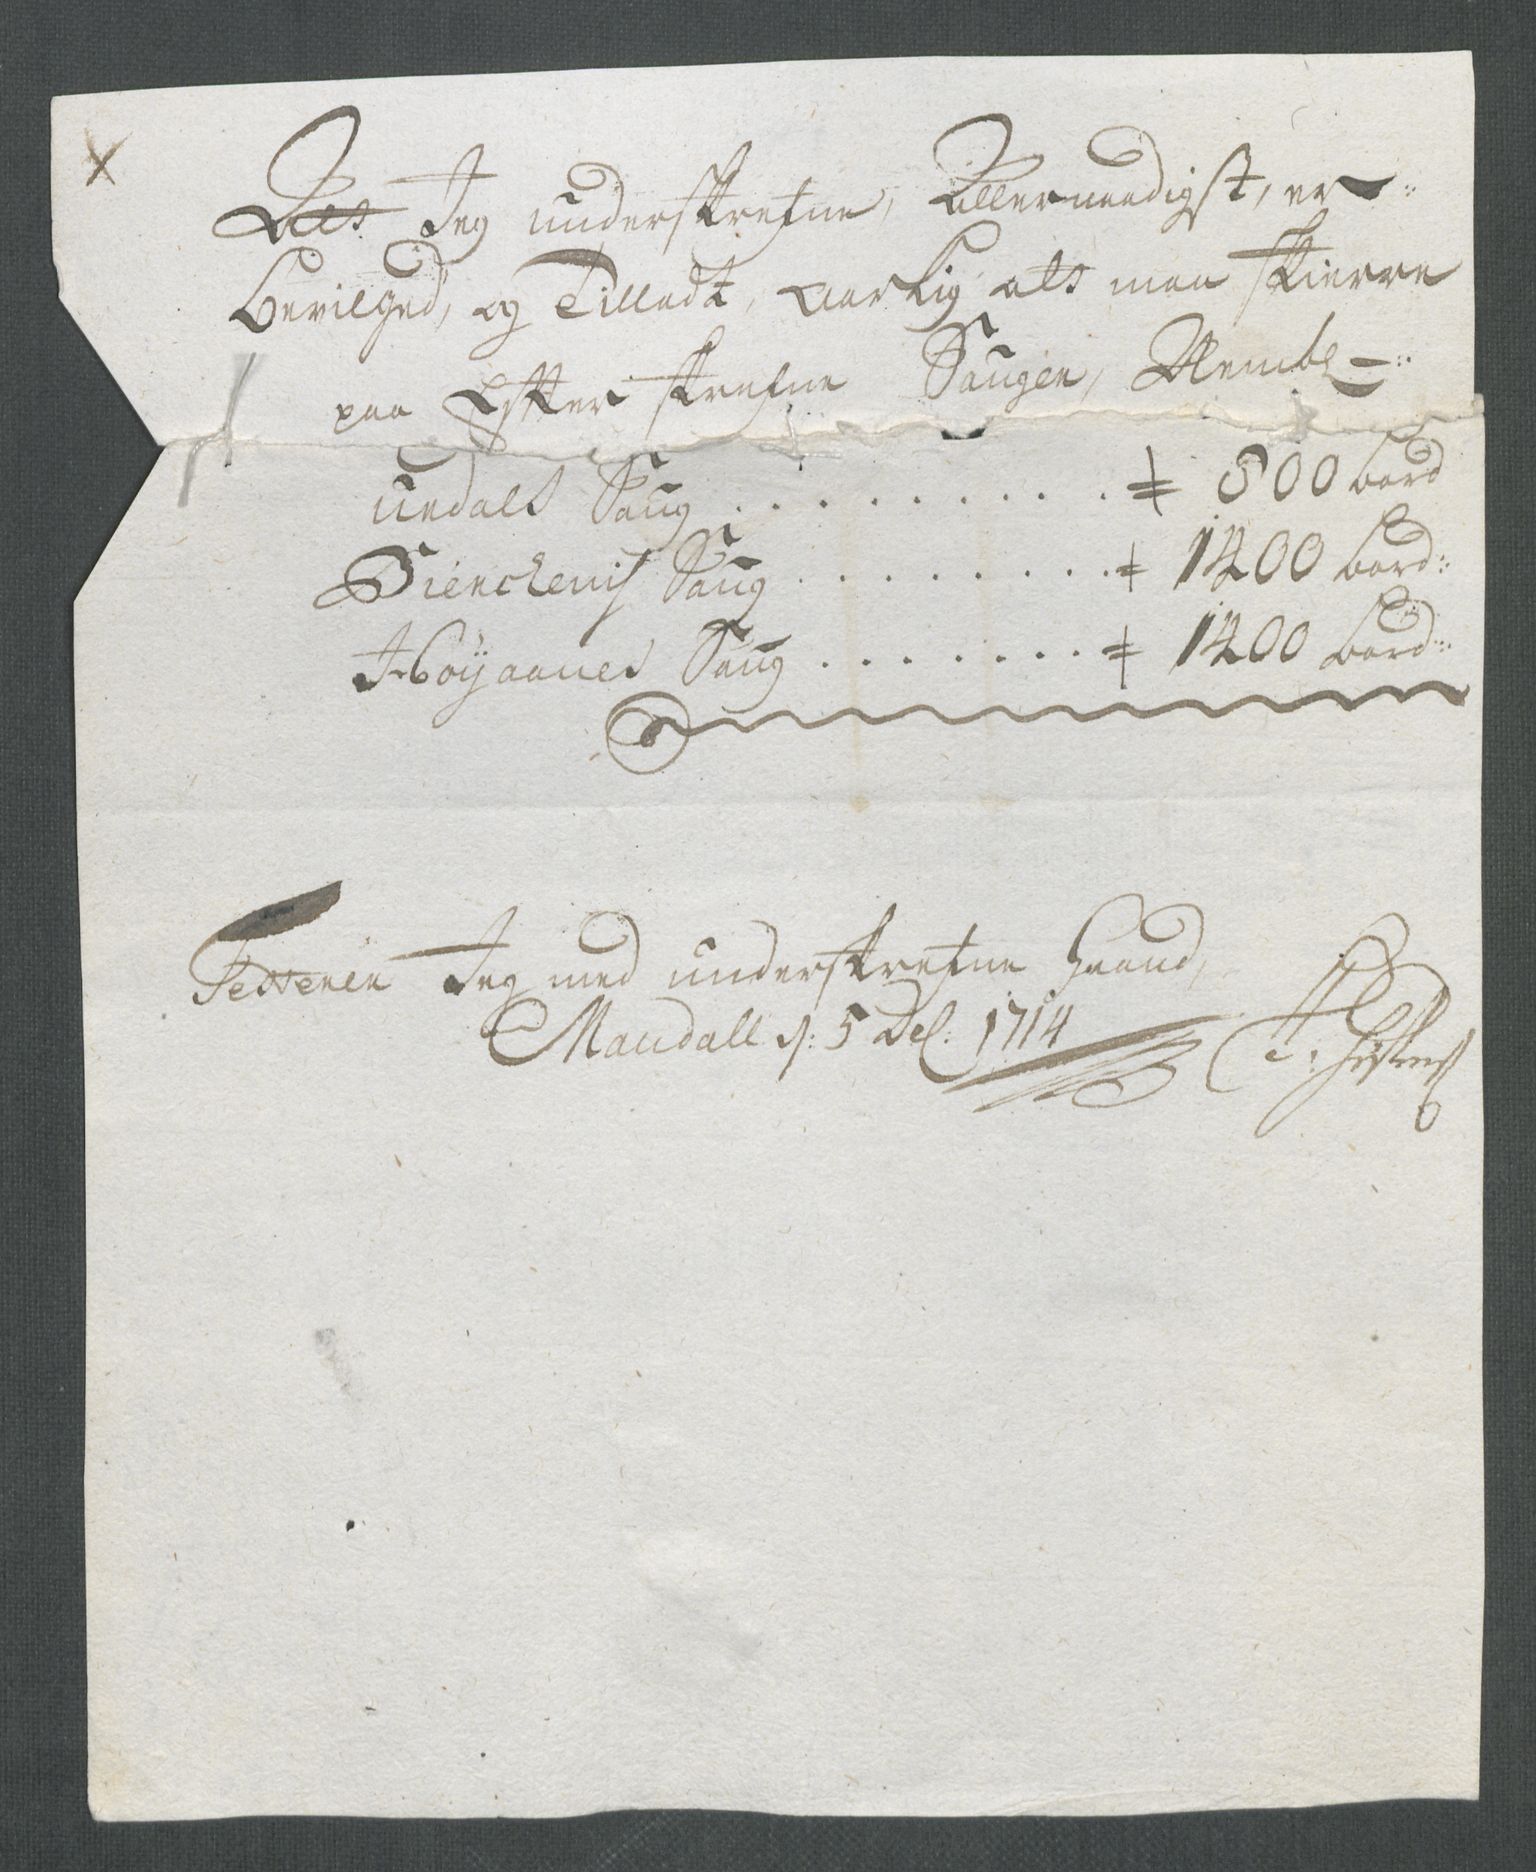 X
Als Jeg underskrefne, Allernaadigst, er
bevilged, og Tilladt, aarlig alt maa skierre
paa Effter skrefne Sauger, Nembl:
Uedals Saug . . . . . . . . . . 800 bord
Bienckenis Saug . . . . . . . . . 1400 bord:
Høyaanes Saug . . . . . . . . 1400 bord:
Testerer Jeg med underskrefne Haand,
Mandall d: 5 Dec: 1714